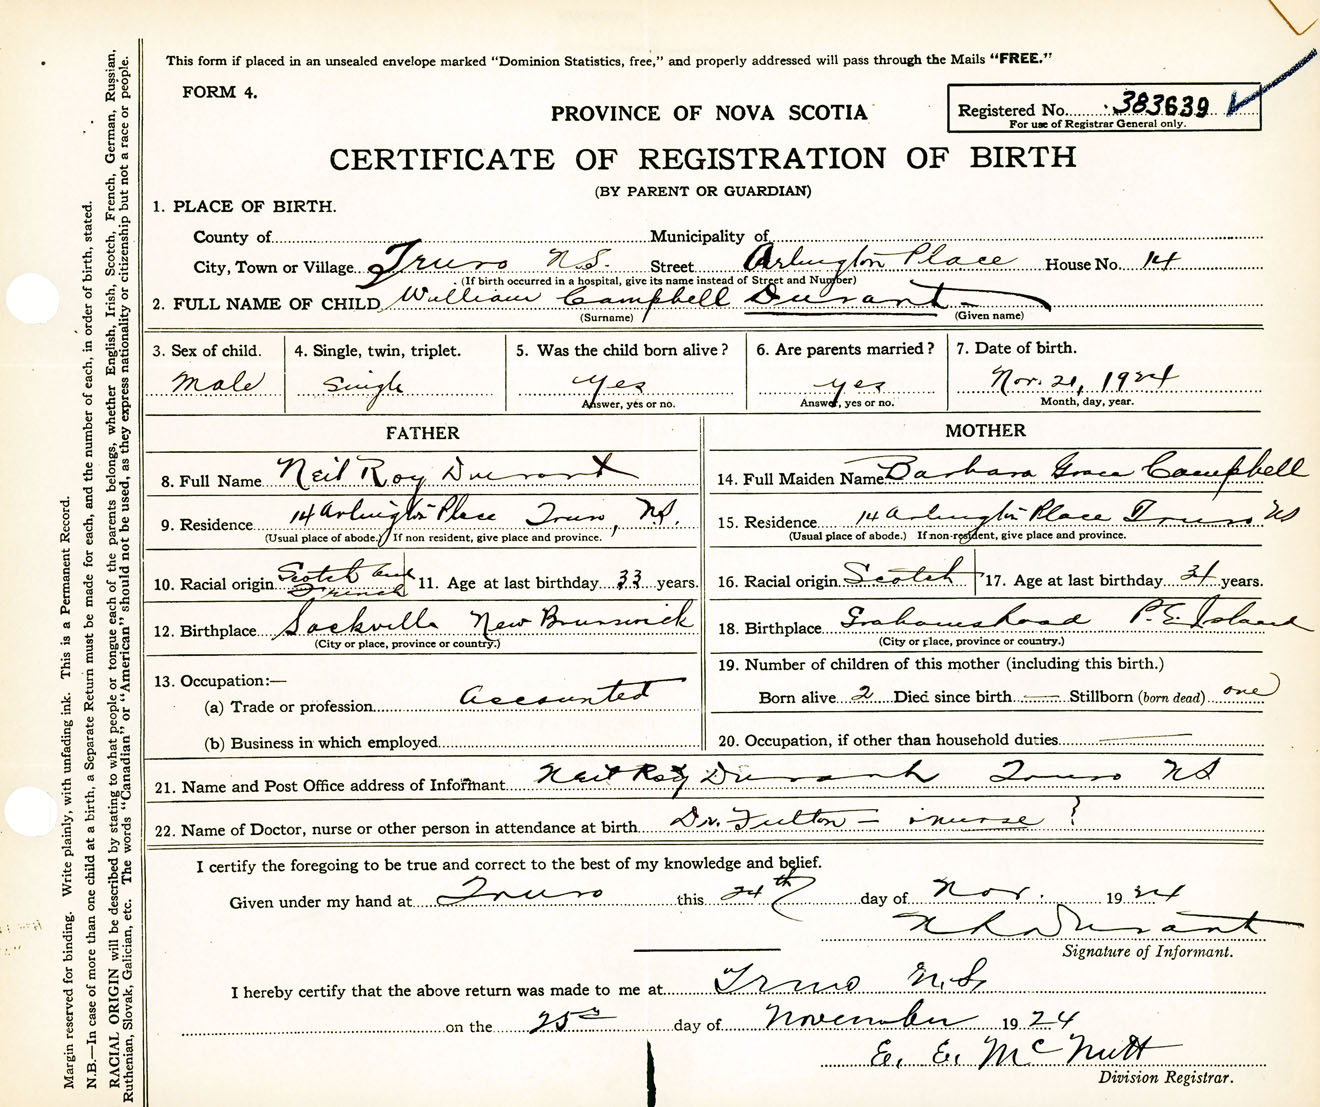 This form if placed in an unsealed envelope marked “Dominion Statistics, free,” and properly addressed will pass through the Mails “FREE.”
FORM 4.
PROVINCE OF NOVA SCOTIA
Registered No. 383639
For use of Registrar General only.
CERTIFICATE OF REGISTRATION OF BIRTH
(BY PARENT OR GUARDIAN)
1. PLACE OF BIRTH.
County of Municipality of
City, Town or Village Truro N.S. Street Arlington Place House No. 14
(If birth occurred in a hospital, give its name instead of Street and Number)
2. FULL NAME OF CHILD William Campbell Durant
(Surname) (Given name)
3. Sex of child. 4. Single, twin, triplet. 5. Was the child born alive? 6. Are parents married? 7. Date of birth.
Male Single Yes Yes Nov. 21, 1924
Answer, yes or no. Answer, yes or no. Month, day, year.
FATHER MOTHER
8. Full Name Neil Roy Durant 14. Full Maiden Name Barbara Grace Campbell
9. Residence 14 Arlington Place Truro, N.S. 15. Residence 14 Arlington Place Truro NS
(Usual place of abode.) If non resident, give place and province. (Usual place of abode.) If non-resident, give place and province.
10. Racial origin Scotch and French 11. Age at last birthday 33 years. 16. Racial origin Scotch 17. Age at last birthday 31 years.
12. Birthplace Sackville New Brunswick 18. Birthplace Grahamsroad P.E. Island
(City or place, province or country.) (City or place, province or country.)
13. Occupation:— 19. Number of children of this mother (including this birth.)
(a) Trade or profession Accounted Born alive 2 Died since birth — Stillborn (born dead) one
(b) Business in which employed 20. Occupation, if other than household duties —
21. Name and Post Office address of Informant Neil Roy Durant Truro NS
22. Name of Doctor, nurse or other person in attendance at birth Dr. Fulton – nurse ?
I certify the foregoing to be true and correct to the best of my knowledge and belief.
Given under my hand at Truro this 24th day of Nov. 1924
N R Durant
Signature of Informant.
I hereby certify that the above return was made to me at Truro N.S.
on the 25 day of November 1924
E. E. McNutt
Division Registrar.
Margin reserved for binding. Write plainly, with unfading ink. This is a Permanent Record.
N.B.—In case of more than one child at a birth, a Separate Return must be made for each, and the number of each, in order of birth, stated.
RACIAL ORIGIN will be described by stating to what people or tongue each of the parents belongs, whether English, Irish, Scotch, French, German, Russian,
Ruthenian, Slovak, Galician, etc. The words “Canadian” or “American” should not be used, as they express nationality or citizenship but not a race or people.